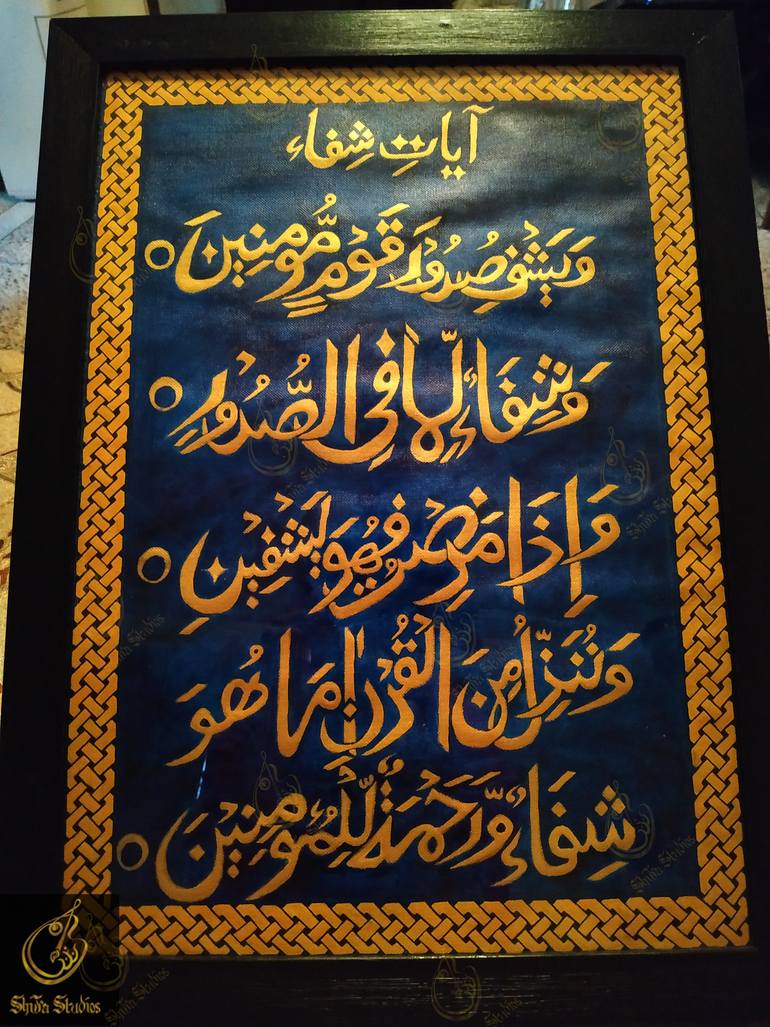 آیاتِ شِفاء
وَیَشْفِ صُدُوْرَ قَوْمٍ مُّؤمِنِیْنَ
وَشِفَاۤءٌ لِّمَا فِی الصُّدُوْرِ
وَاِذَا مَرِضْتُ فَهُوَ یَشْفِیْنِ
وَنُنَزِّلُ مِنَ الْقُرْاٰنِ مَا هُوَ
شِفَاۤءٌ وَّرَحْمَةٌ لِّلْمُؤمِنِیْنَ
Shifa Studios